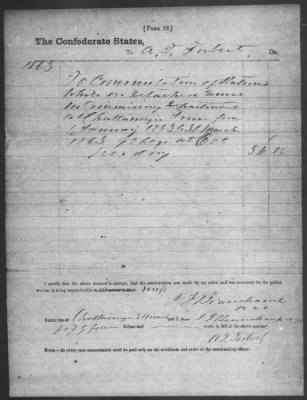 [FORM 18.]
The Confederate States,
To A. T. Forbest, Dr.
1863
To Commutation of Rations
while on detached service
in Commissary Department
at Chattanooga Tenn from
1 January 1863 to 31 March
1863 days at 60c
per day 54 00
I certify that the above account is correct; that the commutation was made by my order, and was necessary for the public
service, it being impracticable to
RECEIVED AT Chattanooga 31 March 1863, from
fifty four dollars and cents, in full of the above account.
NOTE.—In every case commutation must be paid only on the certificate and order of the commanding officer.